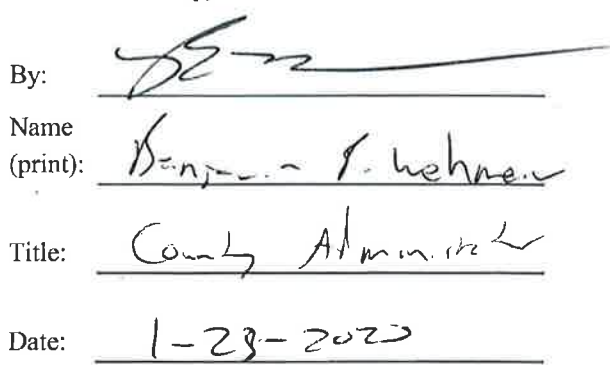 By:
Name
(print): Benjamin P. Wehmeier
Title: County Administrator
Date: 1-28-2020